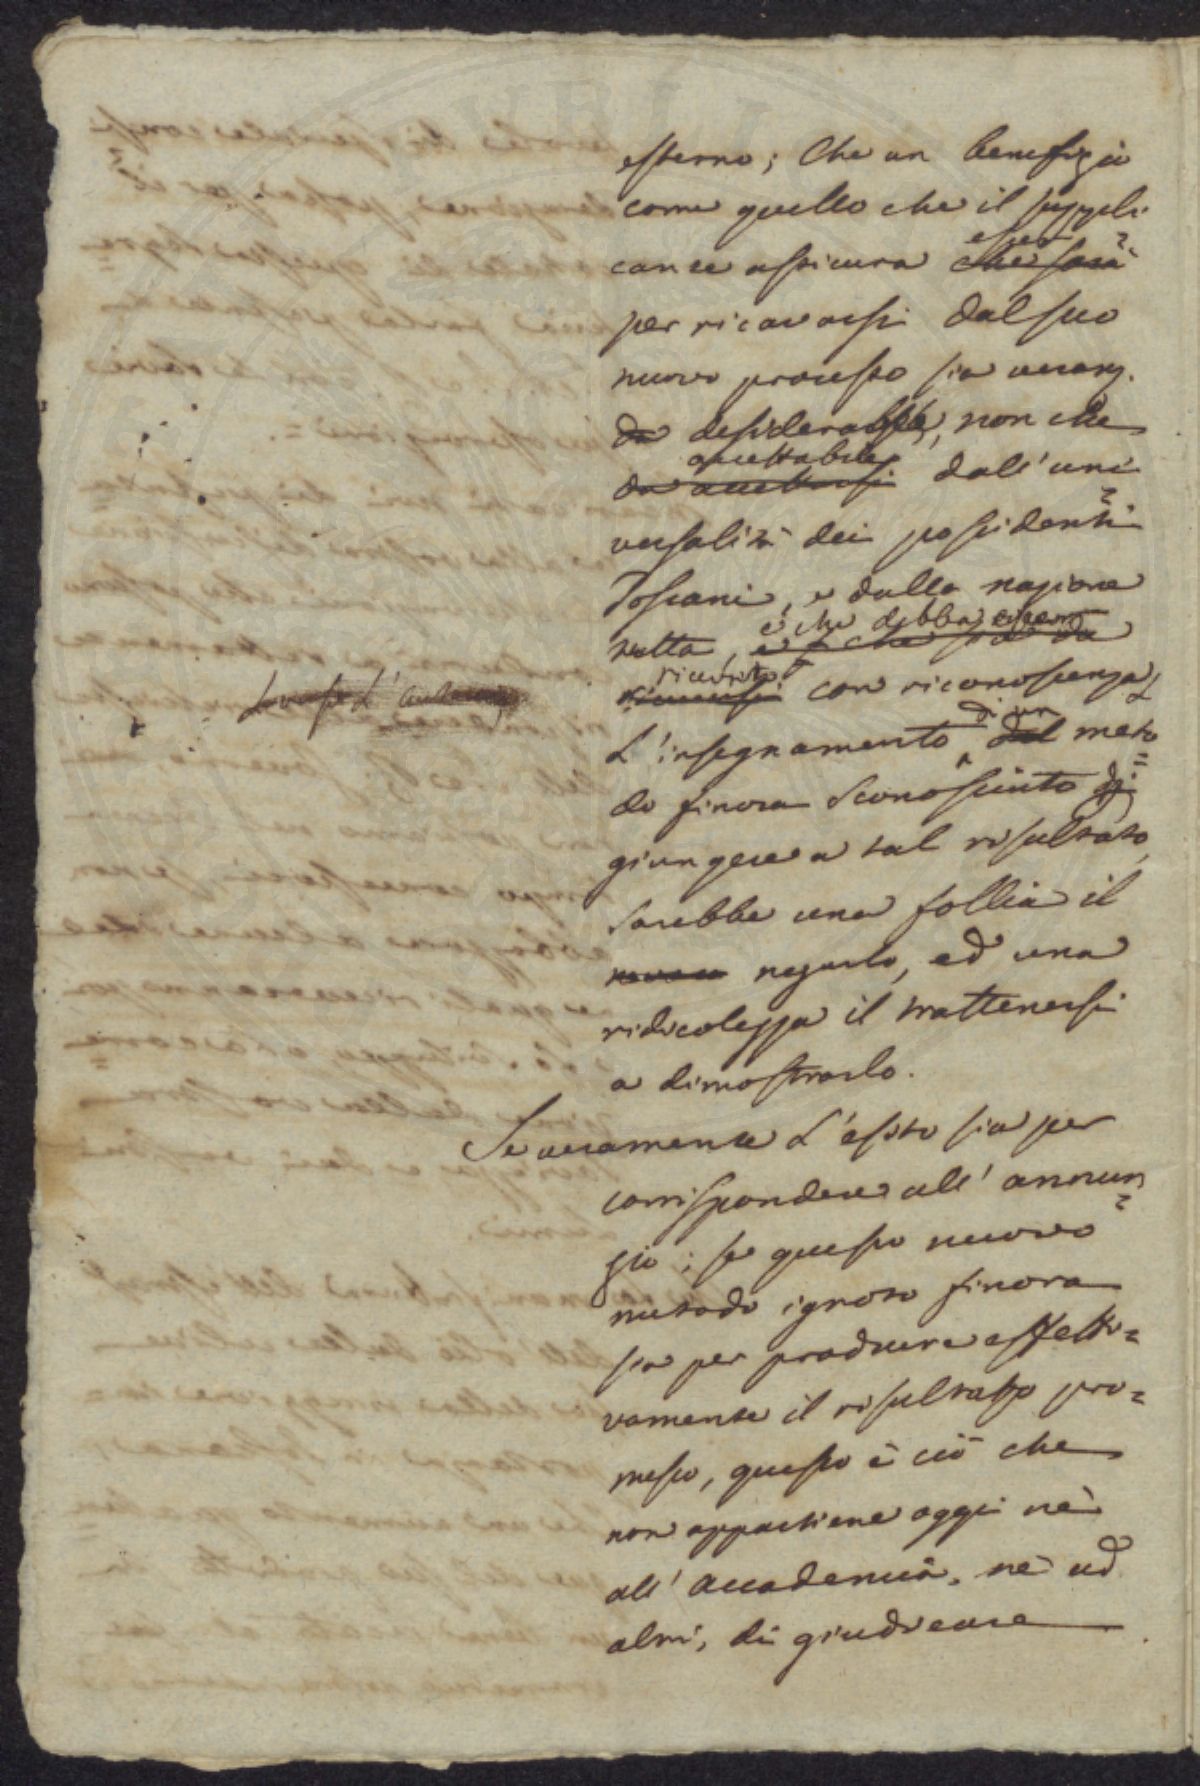 esterno; Che un benefizio
come quello che il suppli-
cante assicura esser che sarà
per ricavarsi dal suo
nuovo processo sia veram.
da desiderabile, non che
accettabile
da accettarsi dall'uni=
versalità dei possidenti
Toscani, e dalla nazione
e che debba essere
tutta, e che sia da
ricevuto
riceversi con riconoscenza
L'insegnamento di un del meto=
do finora sconosciuto di
giungere a tal risultato,
sarebbe una follia il
negarlo, ed una
ridicolezza il trattenersi
a dimostrarlo.
Se veramente l'esito sia per
corrispondere all'annun=
zio; se questo nuovo
metodo ignoto finora
sia per produrre effetti=
vamente il risultato pro=
messo, questo è ciò che
non appartiene oggi nè
all'Accademia, nè ad
altri, di giudicare